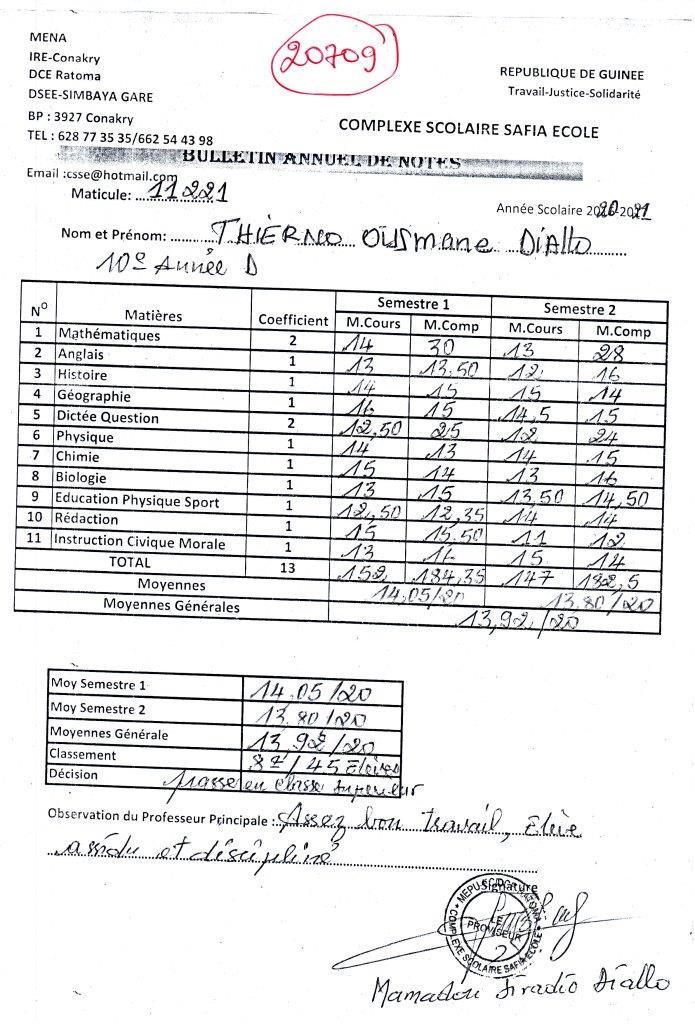 20709
MENA
IRE-Conakry
DCE Ratoma
DSEE-SIMBAYA GARE
BP : 3927 Conakry
TEL : 628 77 35 35/662 54 43 98
Email :csse@hotmail.com
REPUBLIQUE DE GUINEE
Travail-Justice-Solidarité
COMPLEXE SCOLAIRE SAFIA ECOLE
BULLETIN ANNUEL DE NOTES
Maticule: 11221
Année Scolaire 2020-2021
Nom et Prénom: THIERNO OUSmane DiAllo
10e Année D
N° Matières Coefficient Semestre 1 Semestre 2
M.Cours M.Comp M.Cours M.Comp
1 Mathématiques 2 14 30 13 28
2 Anglais 1 13 13,50 12 16
3 Histoire 1 14 15 15 14
4 Géographie 1 16 15 14,5 15
5 Dictée Question 2 12,50 25 12 24
6 Physique 1 14 13 14 15
7 Chimie 1 15 14 13 16
8 Biologie 1 13 15 13,50 14,50
9 Education Physique Sport 1 12,50 12,35 14 14
10 Rédaction 1 15 15.50 11 12
11 Instruction Civique Morale 1 13 16 15 14
TOTAL 13 152 184,35 147 182,5
Moyennes 14,05/20 13,80/20
Moyennes Générales 13,92/20
Moy Semestre 1 14,05/20
Moy Semestre 2 13,80/20
Moyennes Générale 13,92/20
Classement / 45 Elèves
Décision passe en classe supérieur
Observation du Professeur Principale : Assez bon travail, Elève
assidu et discipliné
Signature
LE PROVISEUR
COMPLEXE SCOLAIRE SAFIA-ECOLE
Mamadou Diallo